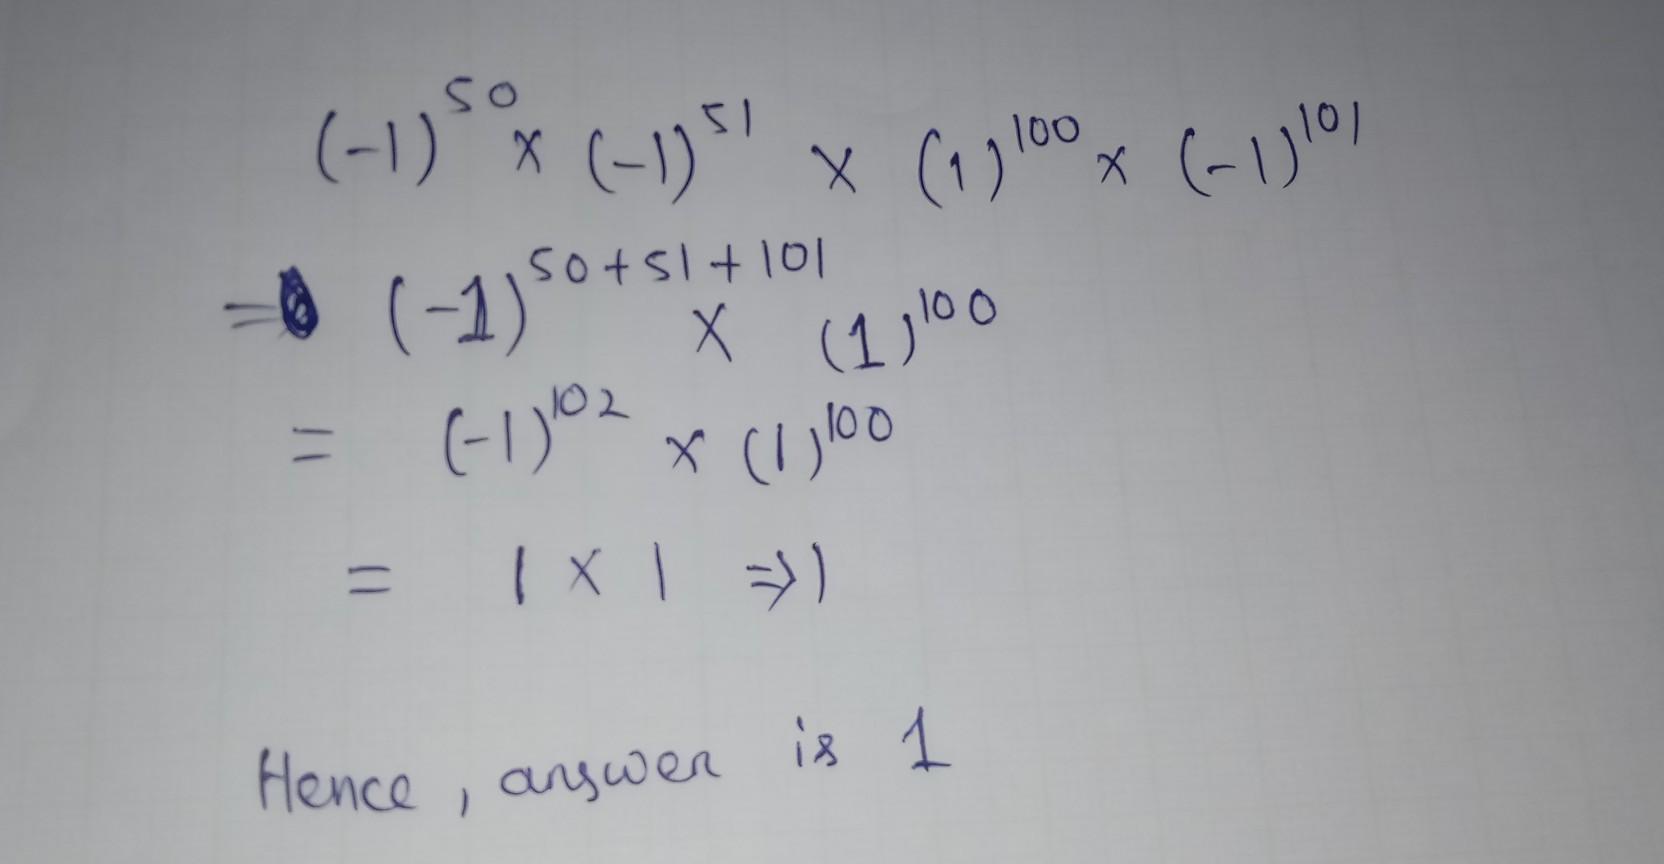 (-1)^50 × (-1)^51 × (1)^100 × (-1)^101
= (-1)^50+51+101 × (1)^100
= (-1)^102 × (1)^100
= 1 × 1 ⇒ 1
Hence, answer is 1